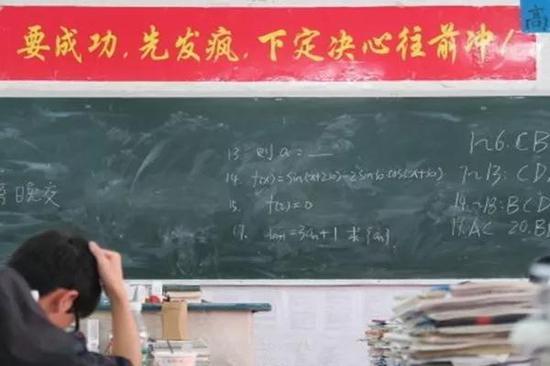 高
要成功，先发疯，下定决心往前冲！
13. 则a=__
14. f(x)=sin(x+2φ)-2sinφcos(x+φ)
15. f(2)=0
17. =3an+1 求{an}.
日晚交
7~13: CD
14~18: BCD
19.AC 20.B